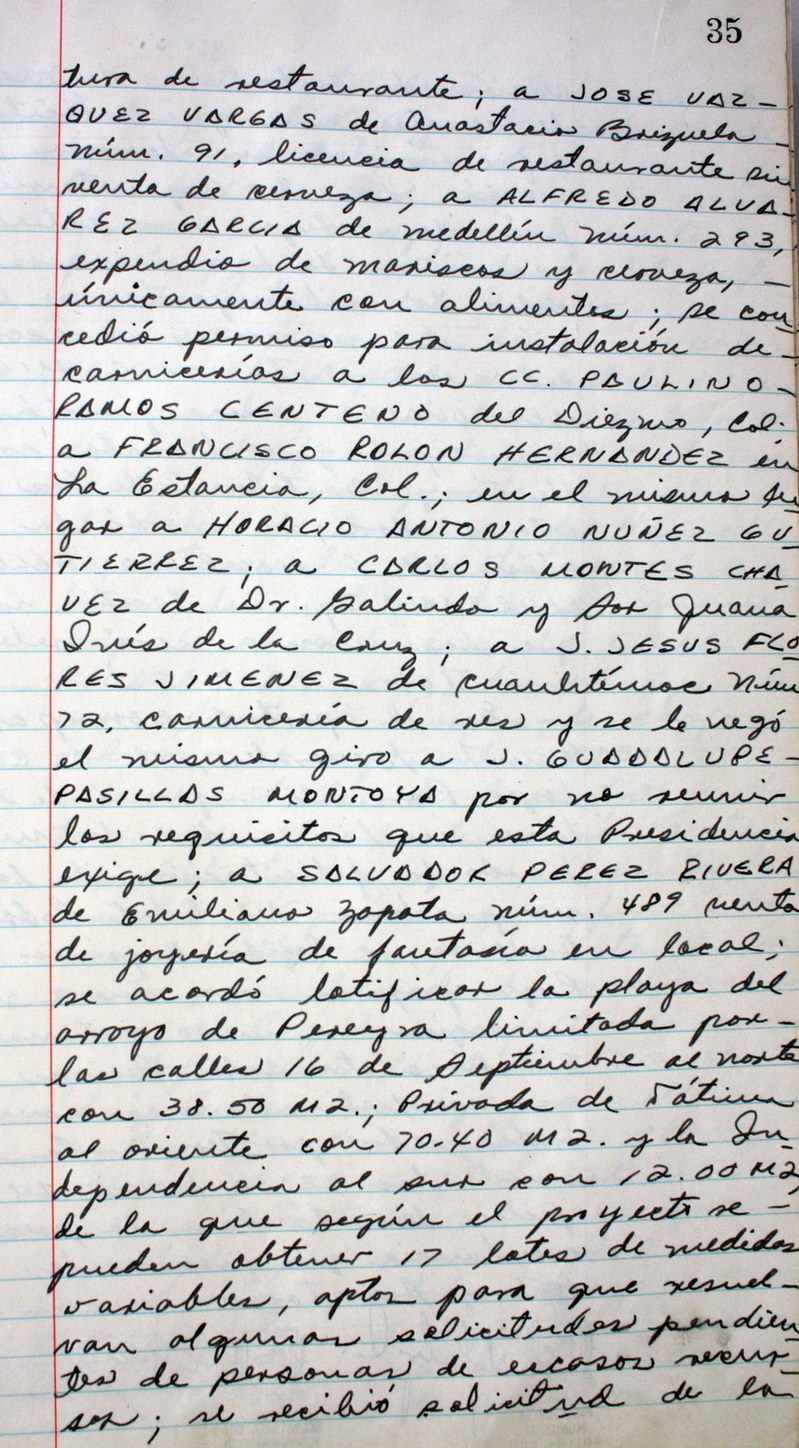 35
tura de restaurante; a JOSE VAZ-
QUEZ VARGAS de Anastacio Brizuela -
núm. 91, licencia de restaurante sin
venta de cerveza; a ALFREDO ALVA-
REZ GARCIA de medellín núm. 293,
expendio de mariscos y cerveza, -
únicamente con alimentos; se con
cedió permiso para instalación de-
carnicerías a los CC. PAULINO-
RAMOS CENTENO del Diezmo, Col.
a FRANCISCO ROLON HERNANDEZ en
La Estancia, Col.; en el mismo lu
gar a HORACIO ANTONIO NUÑEZ GU-
TIERREZ; a CARLOS MONTES CHA-
VEZ de Dr. Galindo y Sor Juana
Inés de la Cruz; a J. JESUS FLO
RES JIMENEZ de cuauhtémoc núm
72, carnicería de res y se le negó
el mismo giro a J. GUADALUPE-
PASILLAS MONTOYA por no reunir
los requisitos que esta Presidencia
exige; a SALVADOR PEREZ RIVERA
de Emiliano Zapata núm. 489 venta
de joyería de fantasía en local;
se acordó lotificar la playa del
arroyo de Pereyra limitada por-
las calles 16 de Septiembre al norte
con 38.50 M2.; Privada de Fátima
al oriente con 70.40 M2. y la In-
dependencia al sur con 12.00 M2,
de la que según el proyecto se -
pueden obtener 17 lotes de medidas
variables, aptos para que resuel-
van algunas solicitudes pendien
tes de personas de escasos recur-
sos; se recibió solicitud de la